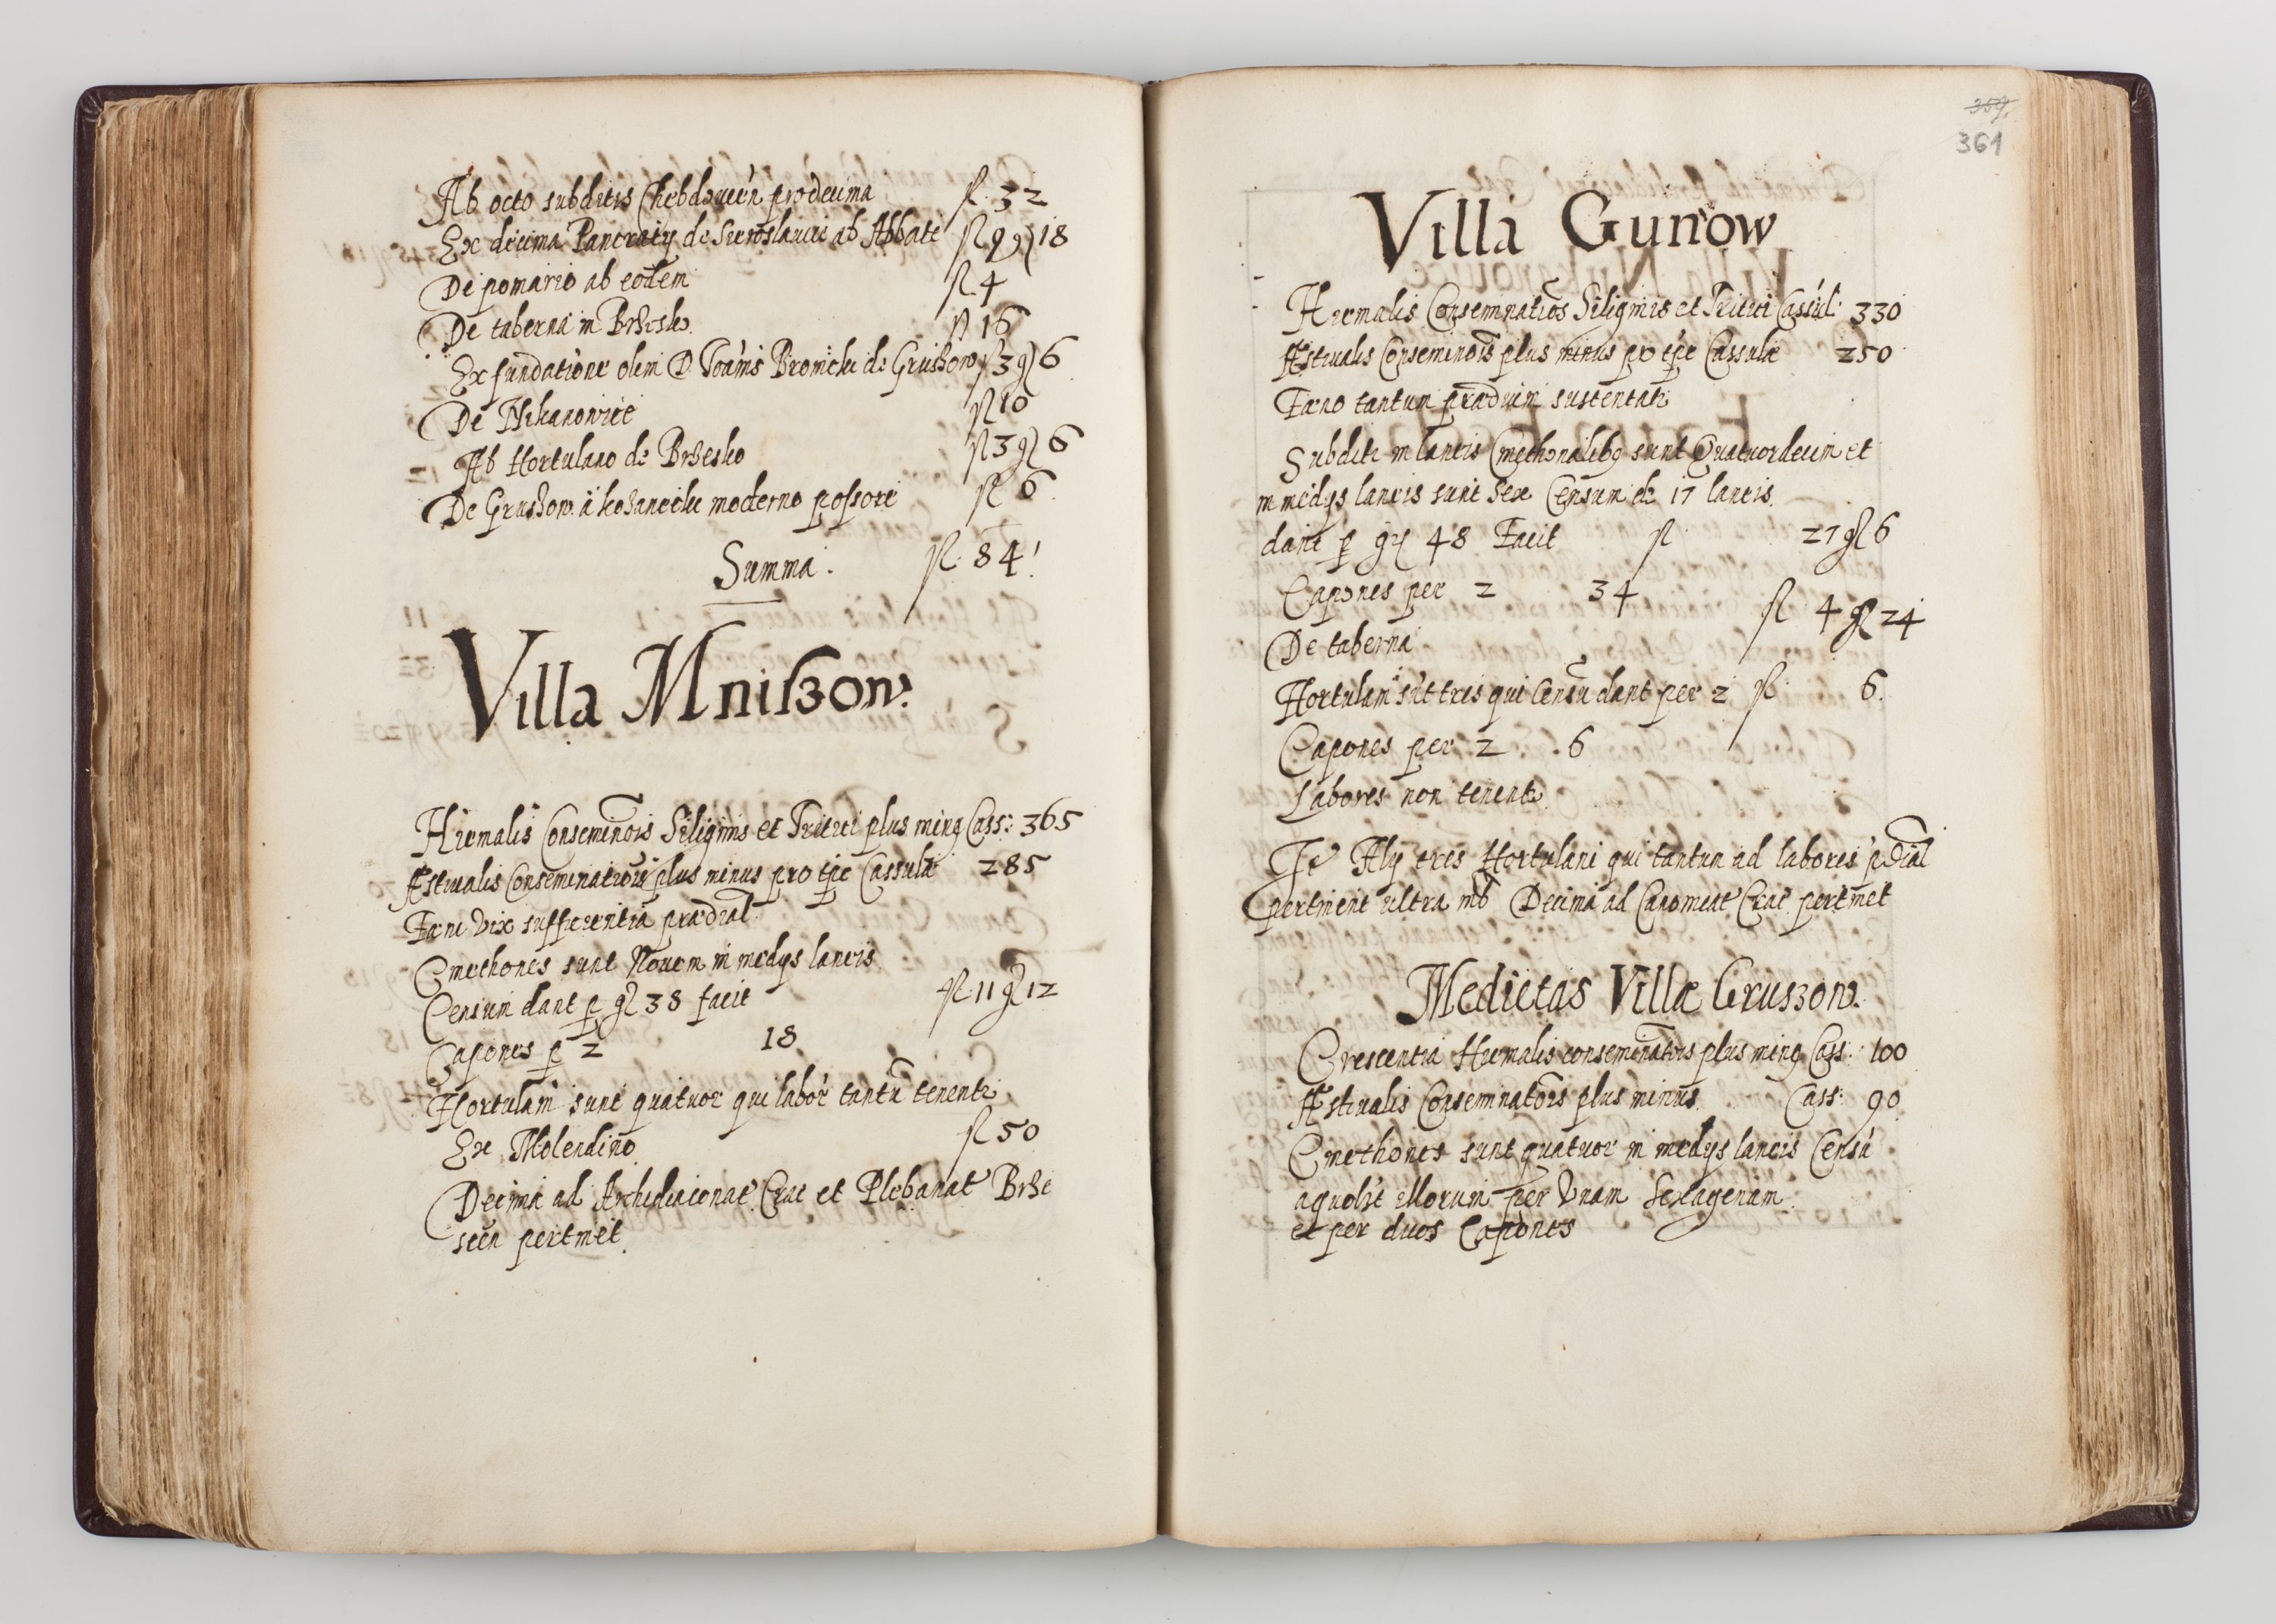 Ab octo subditis Chebdouien pro decima fl. 32
Ex decima Pancratij de Sieroslauice ab Abbate fl 9 gr 18
De pomario ab eodem fl. 4
De taberna in Brzesko fl 16
Ex fundatione olim D. Joānis Bronicki de Gruszow fl 3 gr 6
De Mikanowice fl 10
Ab Hortulano de Brzesko fl 3 gr 6
De Gruszow à kochanecki moderno possore fl 6
Summa. fl. 84
Villa Mniszow.
Hiemalis Conseminōis Siliginis et Tritici plus minq Cass: 365
Æstiualis Conseminationis plus minus pro tpe Cassulæ 285
Fæni vix sufficientia prædial.
Cmethones sunt Nouem in medijs laneis
Censum dant p gr 38 facit fl. 11 gr 12
Capones p 2 18
Hortulani sunt quatuor qui labor tantū tenentr
Ex Molendino fl 50
Decima ad Archidiaconat. Crac et Plebanat Brze
scen pertinet.
359.
361
Villa Gunow
Hiemalis Conseminationis Siliginis et Tritici Cassul: 330
Æstiualis Conseminōis plus minus pro tpe Cassulæ 250
Fæno tantum prædium sustentatr
Subditi in laneis Cmethonalibq sunt Quatuordecim et
in medijs laneis sunt Sex Censum de 17 laneis.
dant p gr 48 Facit fl 27 gr 6
Capones per 2 34
De taberna fl 4 gr 24
Hortulani sūt tres qui Censū dant per 2 fl 6.
Capones per 2 . 6
Labores non tenentr
Alij tres Hortulani qui tantum ad labores pdial
pertinent ultra Decima ad Canonicat Crac. pertinet
Medietas Villæ Gruszow.
Crescentia Hiemalis conseminationis plus minq Cass: 100
Æstiualis Conseminationis plus minus Cass: 90
Cmethones sunt quatuor in medijs laneis Censū
a quolibt illorum per Vnam Sexagenam
et per duos Capones